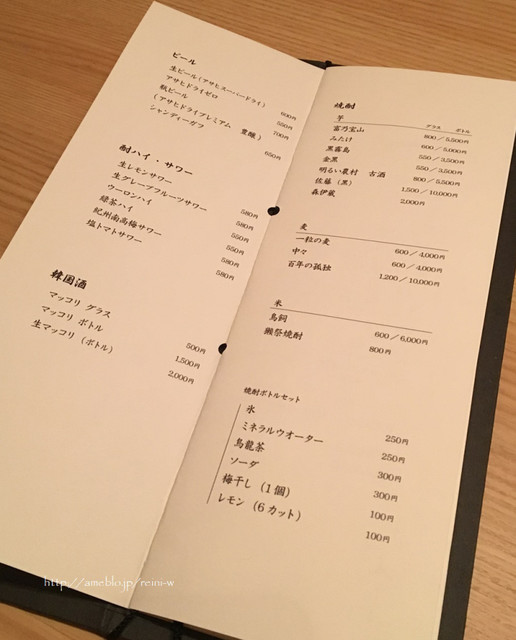 ビール
生ビール(アサヒスーパードライ) 600円
アサヒドライゼロ 550円
瓶ビール 700円
(アサヒドライプレミアム 豊醸)
シャンディーガフ 650円
酎ハイ・サワー
生レモンサワー 580円
生グレープフルーツサワー 580円
ウーロンハイ 550円
緑茶ハイ 550円
紀州南高梅サワー 580円
塩トマトサワー 580円
韓国酒
マッコリ グラス 500円
マッコリ ボトル 1,500円
生マッコリ(ボトル) 2,000円
焼酎
芋 グラス ボトル
富乃宝山 800/5,500円
みたけ 600/5,000円
黒霧島 550/3,500円
金黒 550/3,500円
明るい農村 古酒 800/5,500円
佐藤(黒) 1,500/10,000円
森伊蔵 2,000円
麦
一粒の麦 600/4,000円
中々 600/4,000円
百年の孤独 1,200/10,000円
米
鳥飼 600/6,000円
獺祭焼酎 800円
焼酎ボトルセット
氷 250円
ミネラルウオーター 250円
烏龍茶 300円
ソーダ 300円
梅干し(1個) 100円
レモン(6カット) 100円
http://ameblo.jp/reini-w